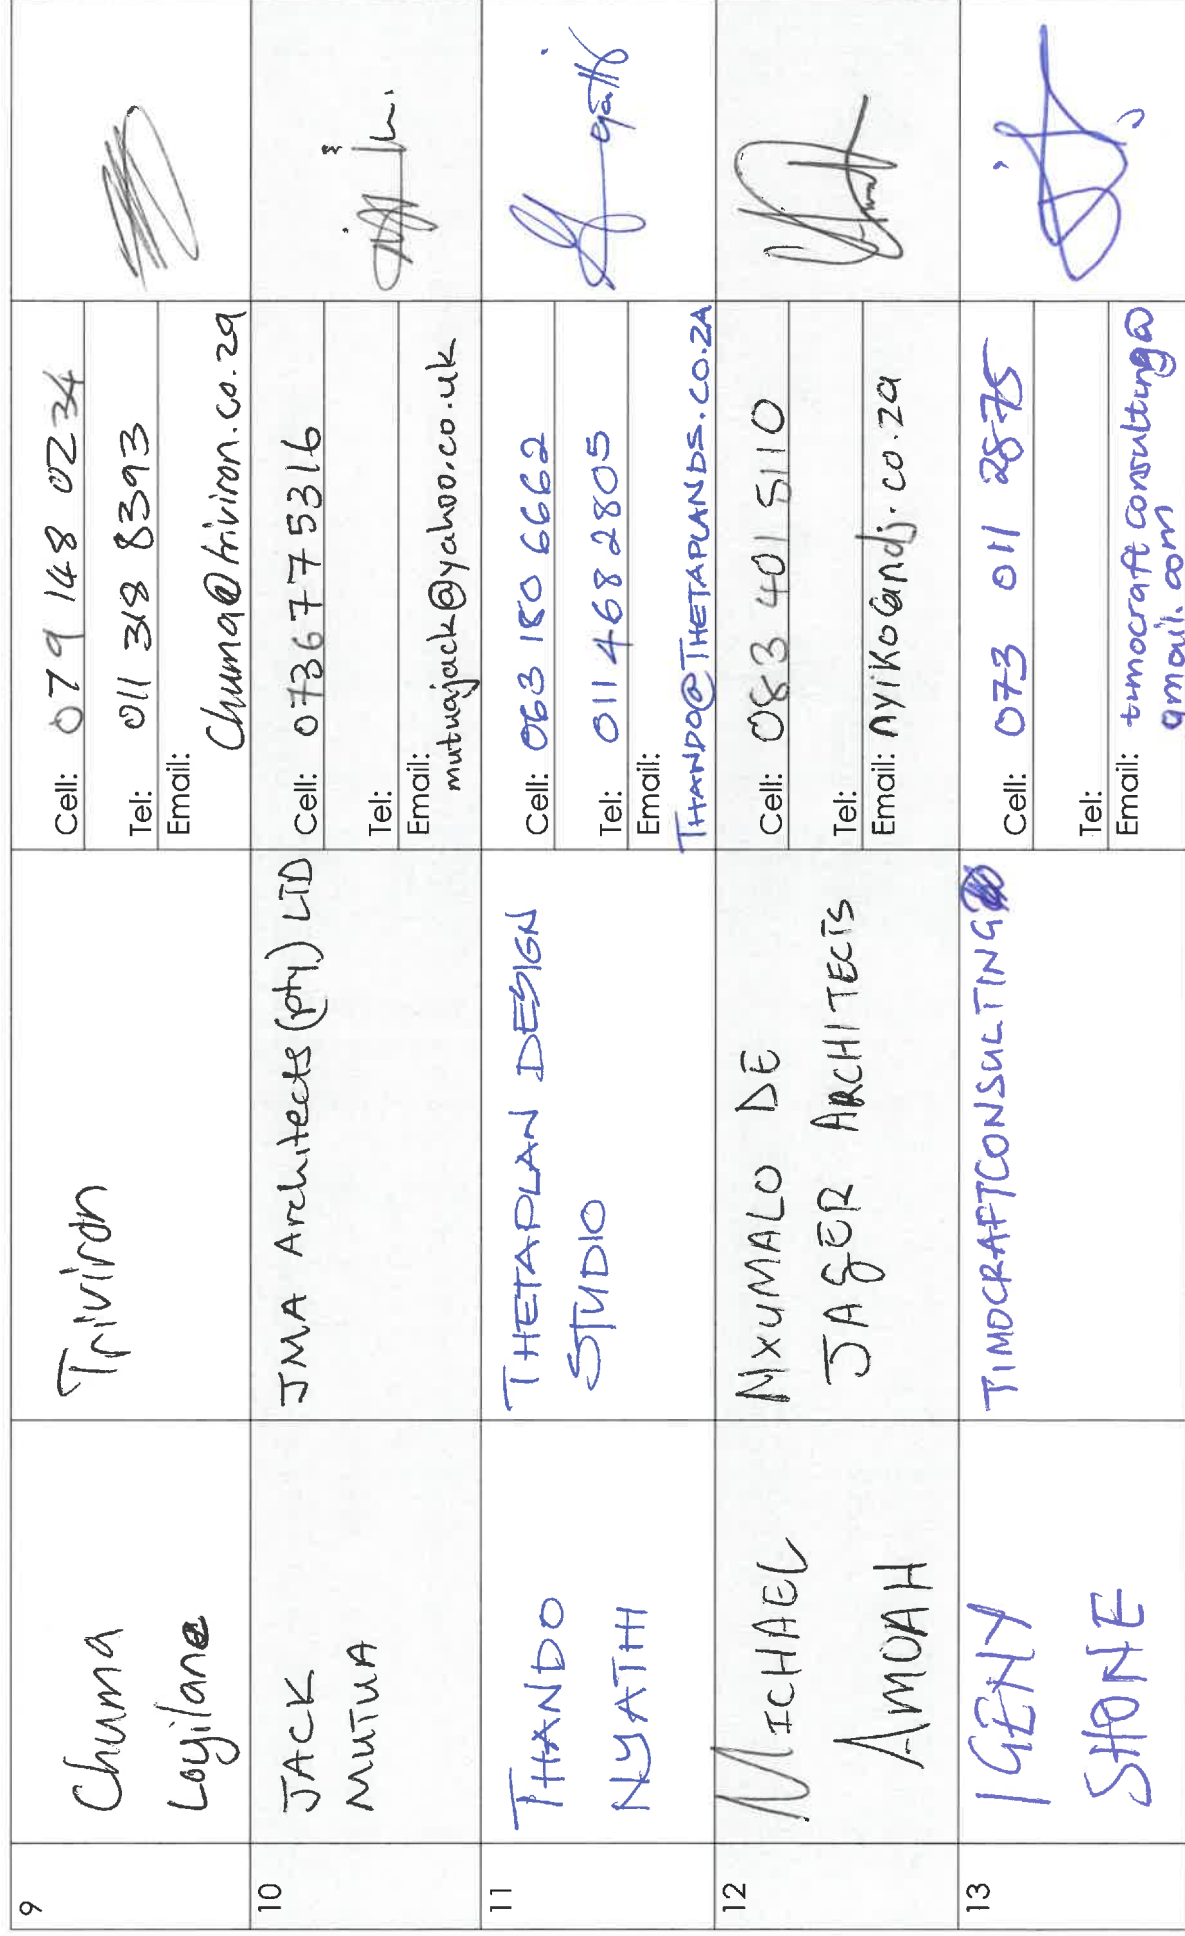 9
Chuma
Loyilane
Triviron
Cell: 079 148 0234
Tel: 011 318 8393
Email:
Chuma@triviron.co.za
10
JACK
MUTUA
JMA Architects (pty) LTD
Cell: 0736775316
Tel:
Email:
mutuajack@yahoo.co.uk
11
THANDO
NYATHI
THETAPLAN DESIGN
STUDIO
Cell: 063 180 6662
Tel: 011 468 2805
Email:
THANDO@THETAPLANDS.CO.ZA
12
MICHAEL
AMOAH
MXUMALO DE
JAGER ARCHITECTS
Cell: 083 401 5110
Tel:
Email: nyiko@mdj.co.za
13
IGENY
SHONE
TIMOCRAFTCONSULTING
Cell: 073 011 2875
Tel:
Email: timocraft consulting@
gmail.com